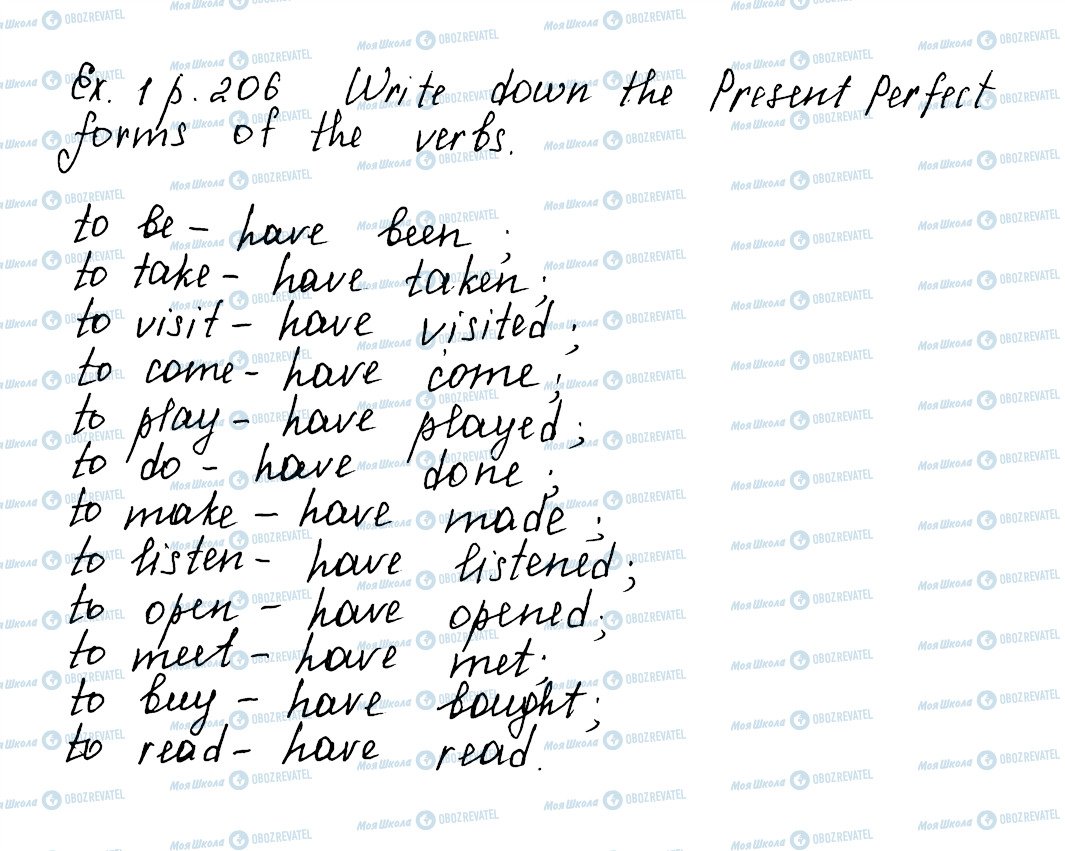 Ex. 1 p. 206 Write down the Present Perfect
forms of the verbs.
to be - have been;
to take - have taken;
to visit - have visited;
to come - have come;
to play - have played;
to do - have done;
to make - have made;
to listen - have listened;
to open - have opened;
to meet - have met;
to buy - have bought;
to read - have read.